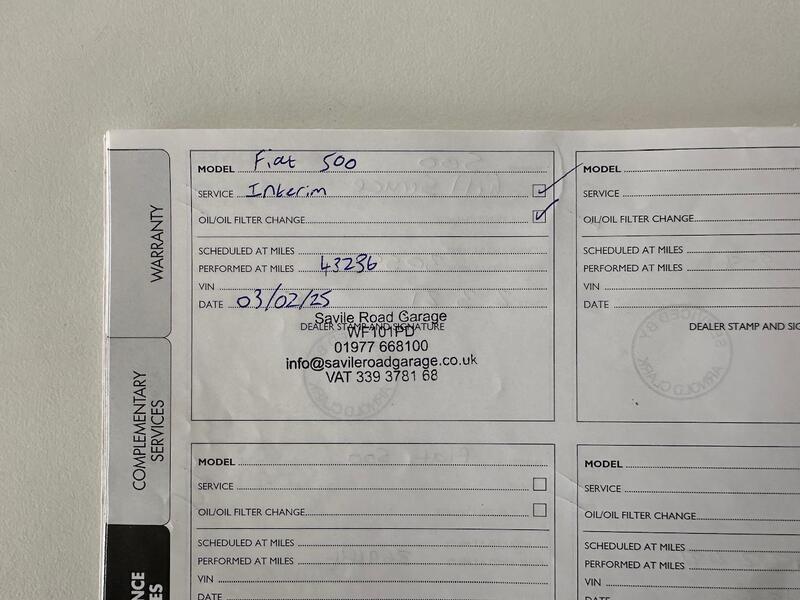 WARRANTY
COMPLEMENTARY
SERVICES
NCE
ES
MODEL Fiat 500
SERVICE Interim
OIL/OIL FILTER CHANGE
SCHEDULED AT MILES
PERFORMED AT MILES 43236
VIN
DATE 03/02/25
DEALER STAMP AND SIGNATURE
Savile Road Garage
WF101PD
01977 668100
info@savileroadgarage.co.uk
VAT 339 3781 68
MODEL
SERVICE
OIL/OIL FILTER CHANGE
SCHEDULED AT MILES
PERFORMED AT MILES
VIN
DATE
DEALER STAMP AND SIG
SERVICED BY
ARNOLD CLARK
MODEL
SERVICE
OIL/OIL FILTER CHANGE
SCHEDULED AT MILES
PERFORMED AT MILES
VIN
DATE
MODEL
SERVICE
OIL/OIL FILTER CHANGE
SCHEDULED AT MILES
PERFORMED AT MILES
VIN
DATE